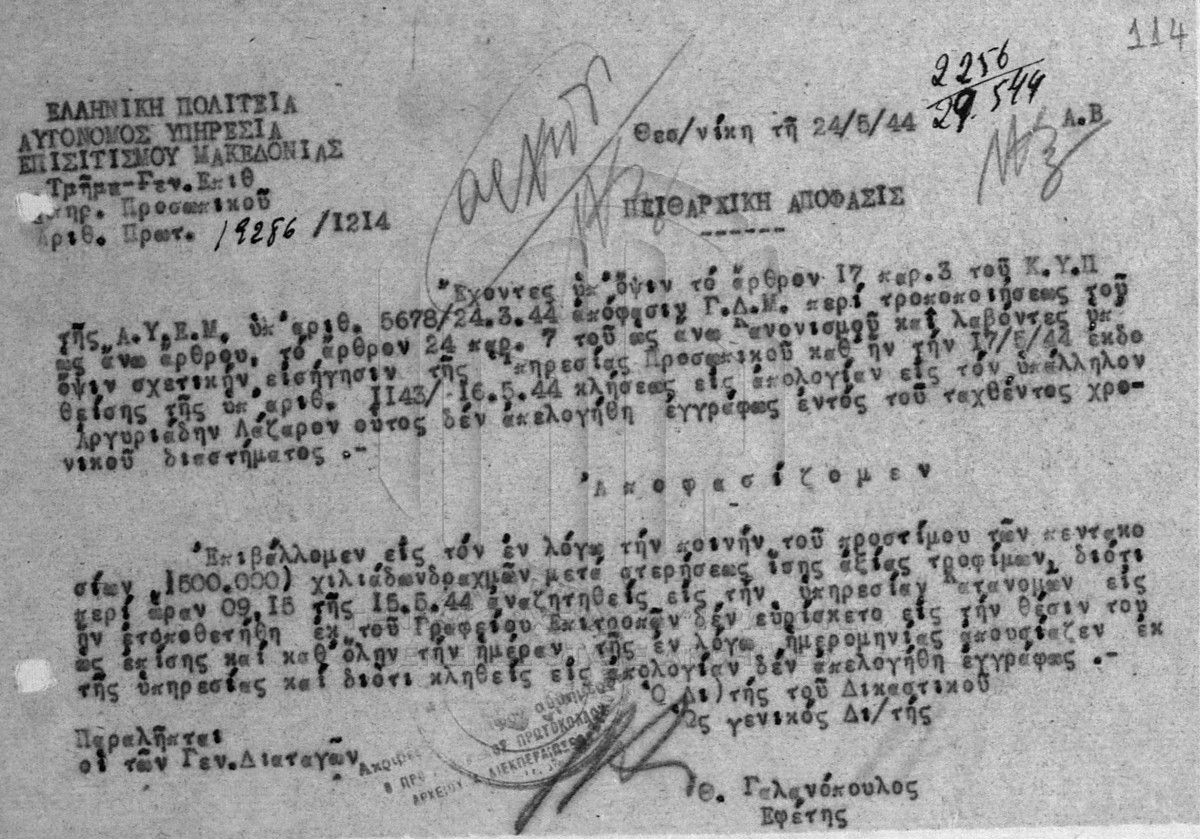 114
2256
29.5.44
ΕΛΛΗΝΙΚΗ ΠΟΛΙΤΕΙΑ
ΑΥΤΟΝΟΜΟΣ ΥΠΗΡΕΣΙΑ
ΕΠΙΣΙΤΙΣΜΟΥ ΜΑΚΕΔΟΝΙΑΣ
Τμῆμα-Γεν.Επιθ
Υπηρ. Προσωπικοῦ
Αριθ. Πρωτ. 19286 /1214
Θεσ/νίκη τῆ 24/5/44
Α.Β
ΠΕΙΘΑΡΧΙΚΗ ΑΠΟΦΑΣΙΣ
------
Ἔχοντες ὑπ'ὄψιν τό ἄρθρον 17 παρ.3 τοῦ Κ.Υ.Π
τῆς Α.Υ.Ε.Μ. ὑπ'ἀριθ. 5678/24.3.44 ἀπόφασιν Γ.Δ.Μ. περί τροποποιήσεως τοῦ
ως ἄνω ἄρθρου, τό ἄρθρον 24 παρ. 7 τοῦ ως ανω Κανονισμοῦ καί λαβόντες ὑπ'
ὄψιν σχετικήν εἰσήγησιν τῆς Ὑπηρεσίας Προσωπικοῦ καθ ἥν τήν 17/5/44 ἐκδο
θείσης τῆς ὑπ ἀριθ. 1143/ 16.5.44 κλήσεως εἰς ἀπολογίαν εἰς τόν ὑπάλληλον
Ἀργυριάδην Λάζαρον οὗτος δέν ἀπελογήθη ἐγγράφως ἐντός τοῦ ταχθέντος χρο-
νικοῦ διαστήματος .-
Ἀ π ο φ α σ ί ζ ο μ ε ν
Ἐπιβάλλομεν εἰς τόν ἐν λόγω τήν ποινήν τοῦ προστίμου τῶν πεντακο
σίων (500.000) χιλιάδωνδραχμῶν μετά στερήσεως ἴσης ἀξίας τροφίμων, διότι
περί ὥραν 09,15 τῆς 15.5.44 ἀναζητηθείς εἰς τήν ὑπηρεσίαν Κατανομῶν εἰς
ἥν ἐτοποθετήθη ἐκ τοῦ Γραφείου Επιτροπῶν δέν εὑρίσκετο εἰς τήν θέσιν του
ως ἐπίσης καί καθ'ὅλην τήν ἡμέραν τῆς ἐν λόγω ἡμερομηνίας ἀπουσίαζεν ἐκ
τῆς ὑπηρεσίας καί διότι κληθείς εἰς ἀπολογίαν δέν ἀπελογήθη ἐγγράφως .-
Ὁ Δι)τής τοῦ Δικαστικοῦ
Ὡς γενικός Δι/τής
Παραλῆπται
οἱ τῶν Γεν.Διαταγῶν
ΠΡΩΤΟΚΟΛΛΟΥ
ΑΡΧΕΙΟΥ
Θ. Γαλανόπουλος
Εφέτης